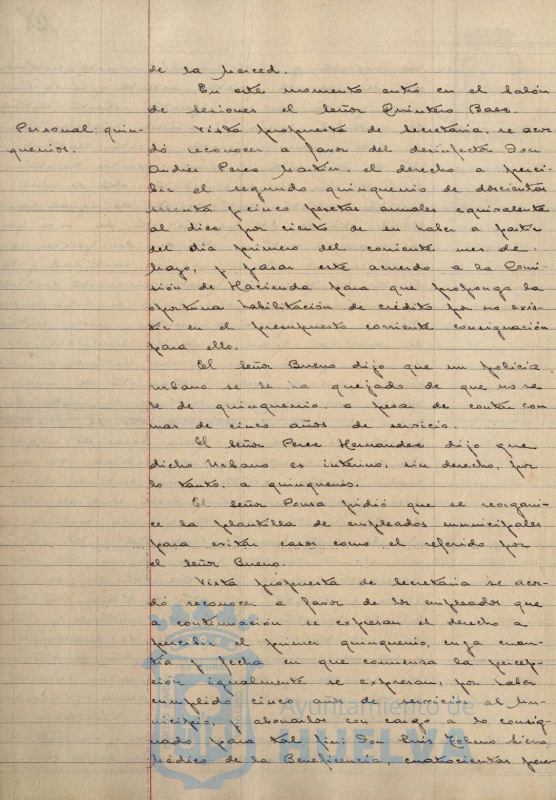 de la Merced.
En este momento entró en el salón
de sesiones el señor Quintero Baez.
Personal: quin-
quenios.
Vista propuesta de Secretaría, se acor-
dó reconocer a favor del desinfector Don
Andrés Perez Martín, el derecho a perci-
bir el segundo quinquenio de doscientas
sesenta y cinco pesetas anuales equivalente
al diez por ciento de su haber a partir
del día primero del corriente mes de
Mayo, y pasar este acuerdo a la Comi-
sión de Hacienda para que proponga la
oportuna habilitación de crédito por no exis-
tir en el presupuesto corriente consignación
para ello.
El señor Bueno dijo que un policía
urbano se le ha quejado de que no se
le de quinquenio, a pesar de contar con
mas de cinco años de servicio.
El señor Perez Hernandez dijo que
dicho Urbano es interino, sin derecho, por
lo tanto, a quinquenio.
El señor Ponsa pidió que se reorgani-
ce la plantilla de empleados municipales
para evitar casos como el referido por
el señor Bueno.
Vista propuesta de Secretaría se acor-
dó reconocer a favor de los empleados que
a continuación se expresan el derecho a
percibir el primer quinquenio, cuya cuan-
tía y fecha en que comienza la percep-
ción igualmente se expresan, por haber
cumplido cinco años de servicio al Mu-
nicipio, y abonarlos con cargo a lo consig-
nado para tal fin: Don Luis
Médico de la Beneficencia, cuatrocientas pese
Ayuntamiento de
HUELVA